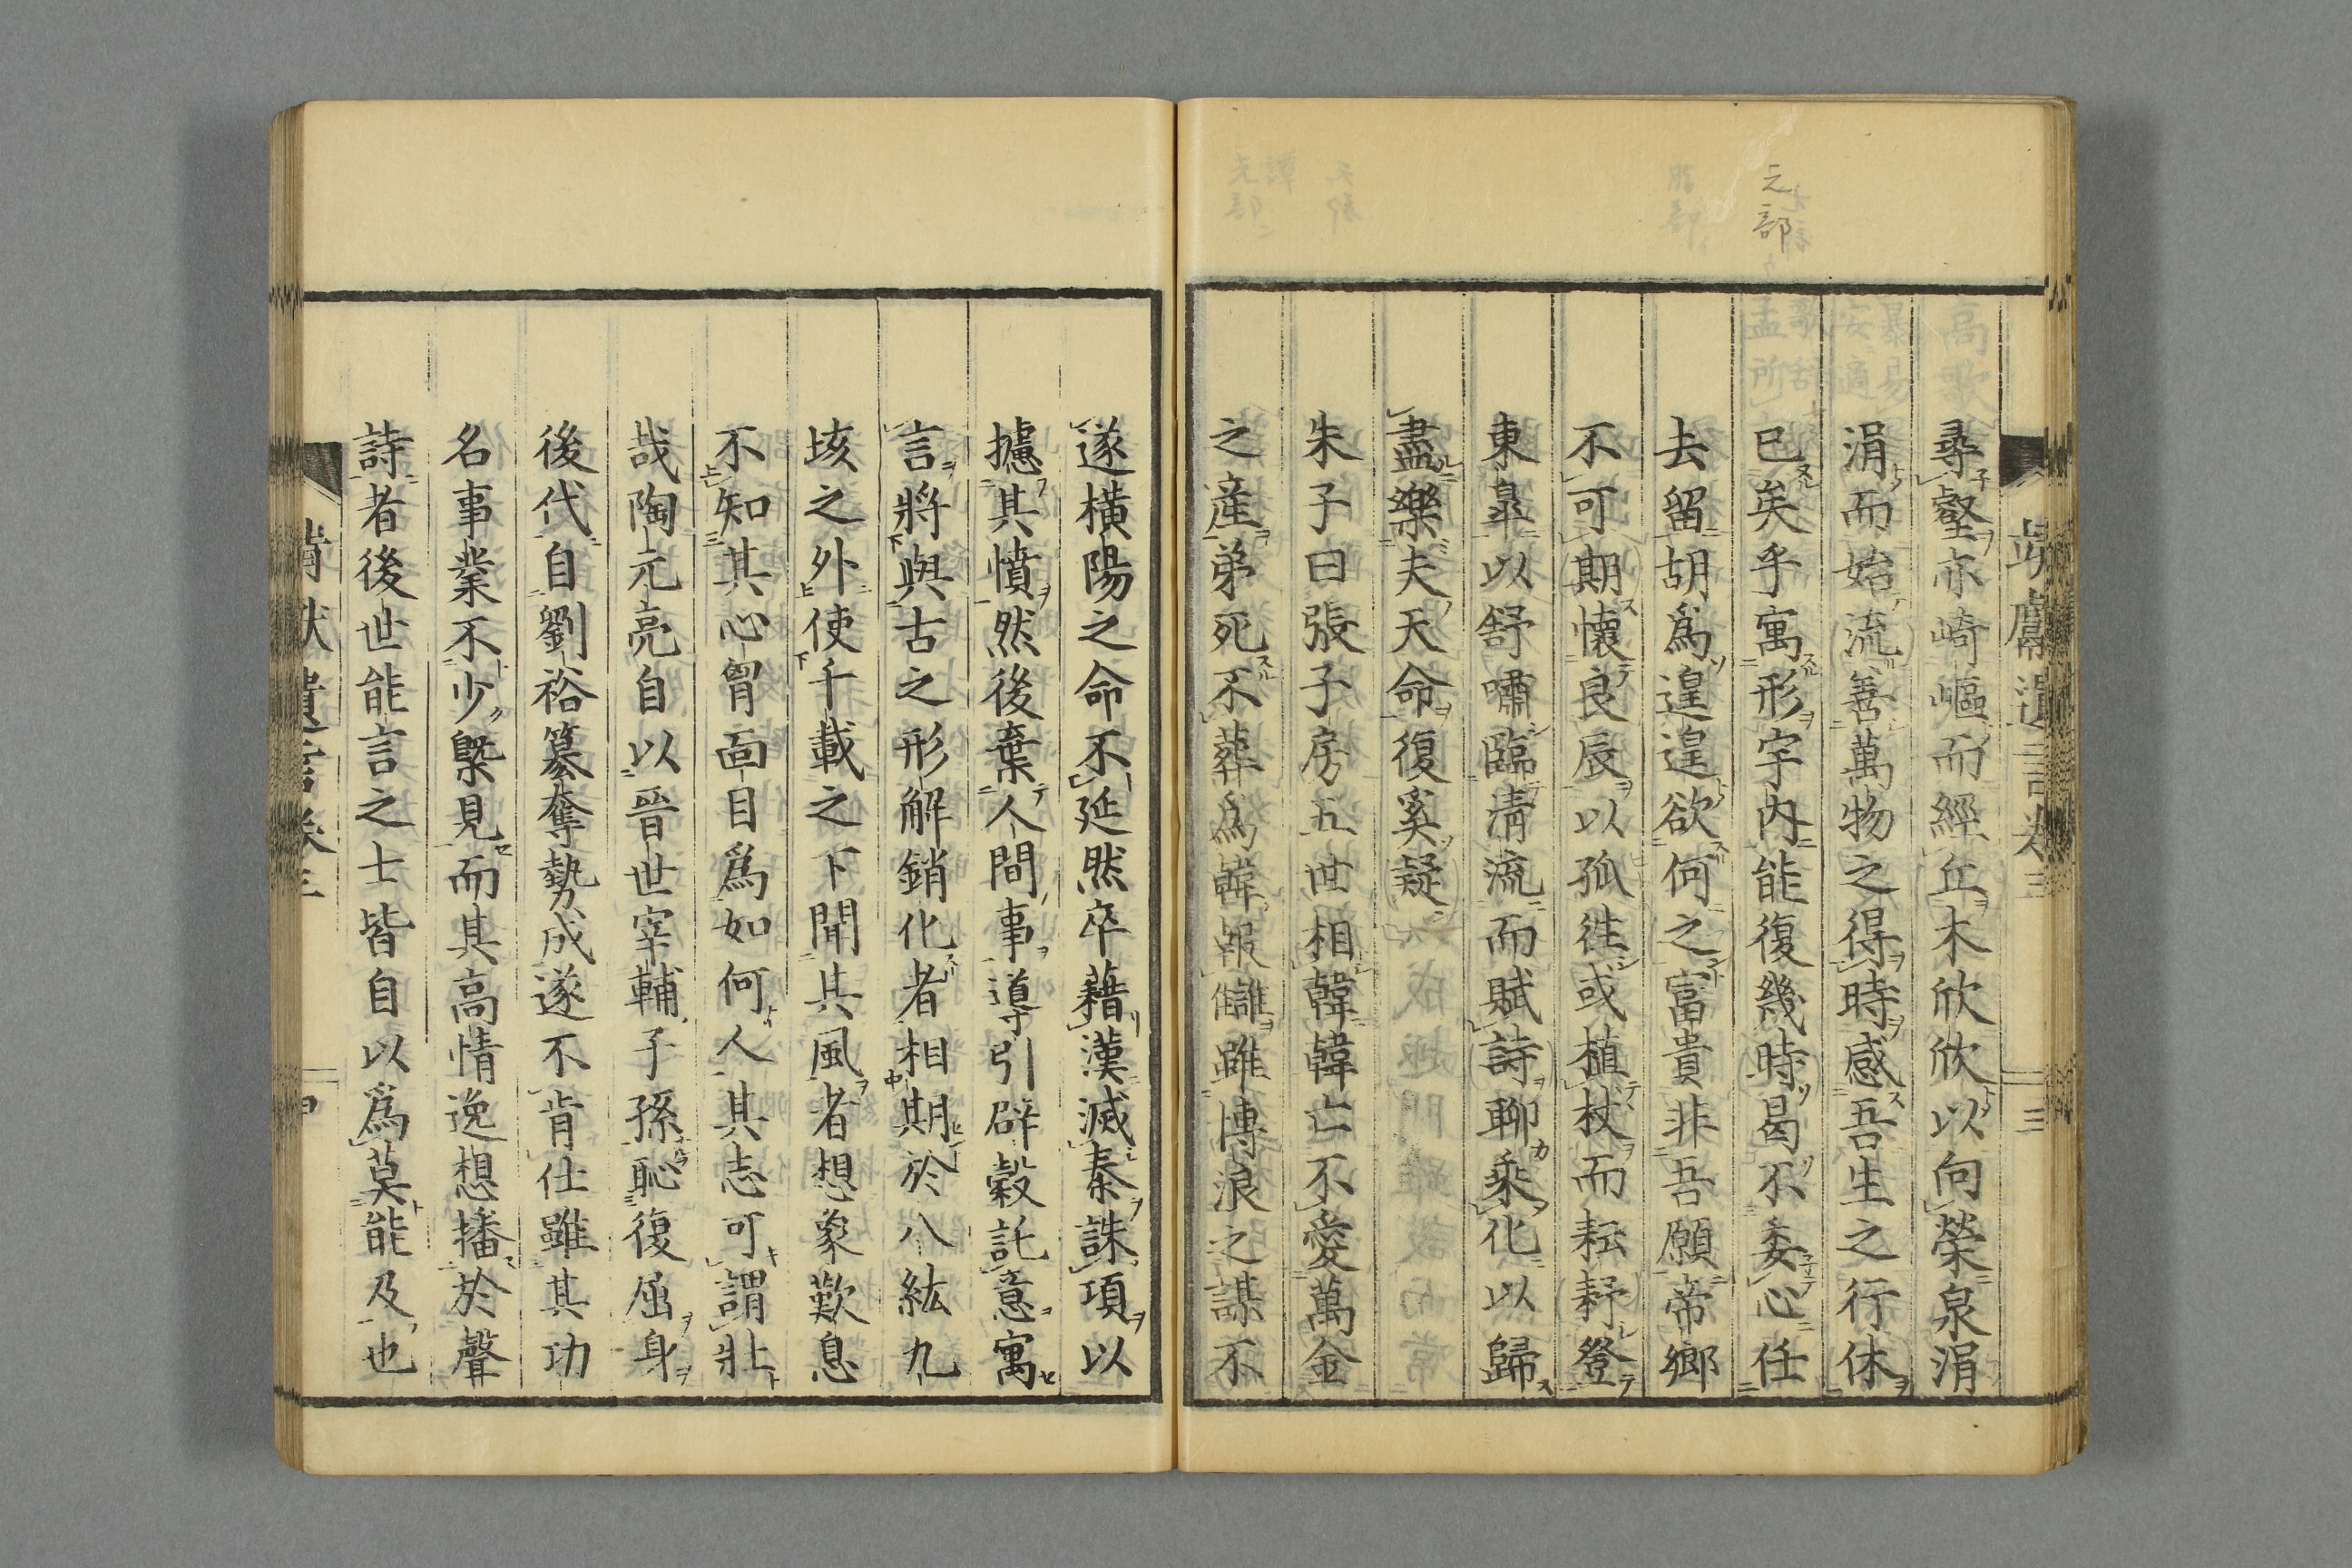 元部
尋壑亦崎嶇而經丘木欣欣以向榮泉涓
涓而始流善萬物之得時感吾生之行休
已矣乎寓形宇内能復幾時曷不委心任
去留胡爲遑遑欲何之富貴非吾願帝鄉
不可期懷良辰以孤徃或植杖而耘耔登
東皐以舒嘯臨淸流而賦詩聊乘化以歸
盡樂夫天命復奚疑
朱子曰張子房五世相韓韓亡不愛萬金
之產弟死不葬爲韓報讎雖博浪之謀不
遂橫陽之命不延然卒藉漢滅秦誅項以
攄其憤然後棄人間事導引辟穀託意寓
言將與古之形解銷化者相期於八紘九
垓之外使千載之下聞其風者想象歎息
不知其心胷面目爲如何人其志可謂壯
哉陶元亮自以晉世宰輔子孫恥復屈身
後代自劉裕簒奪勢成遂不肯仕雖其功
名事業不少槩見而其高情逸想播於聲
詩者後世能言之士皆自以爲莫能及也